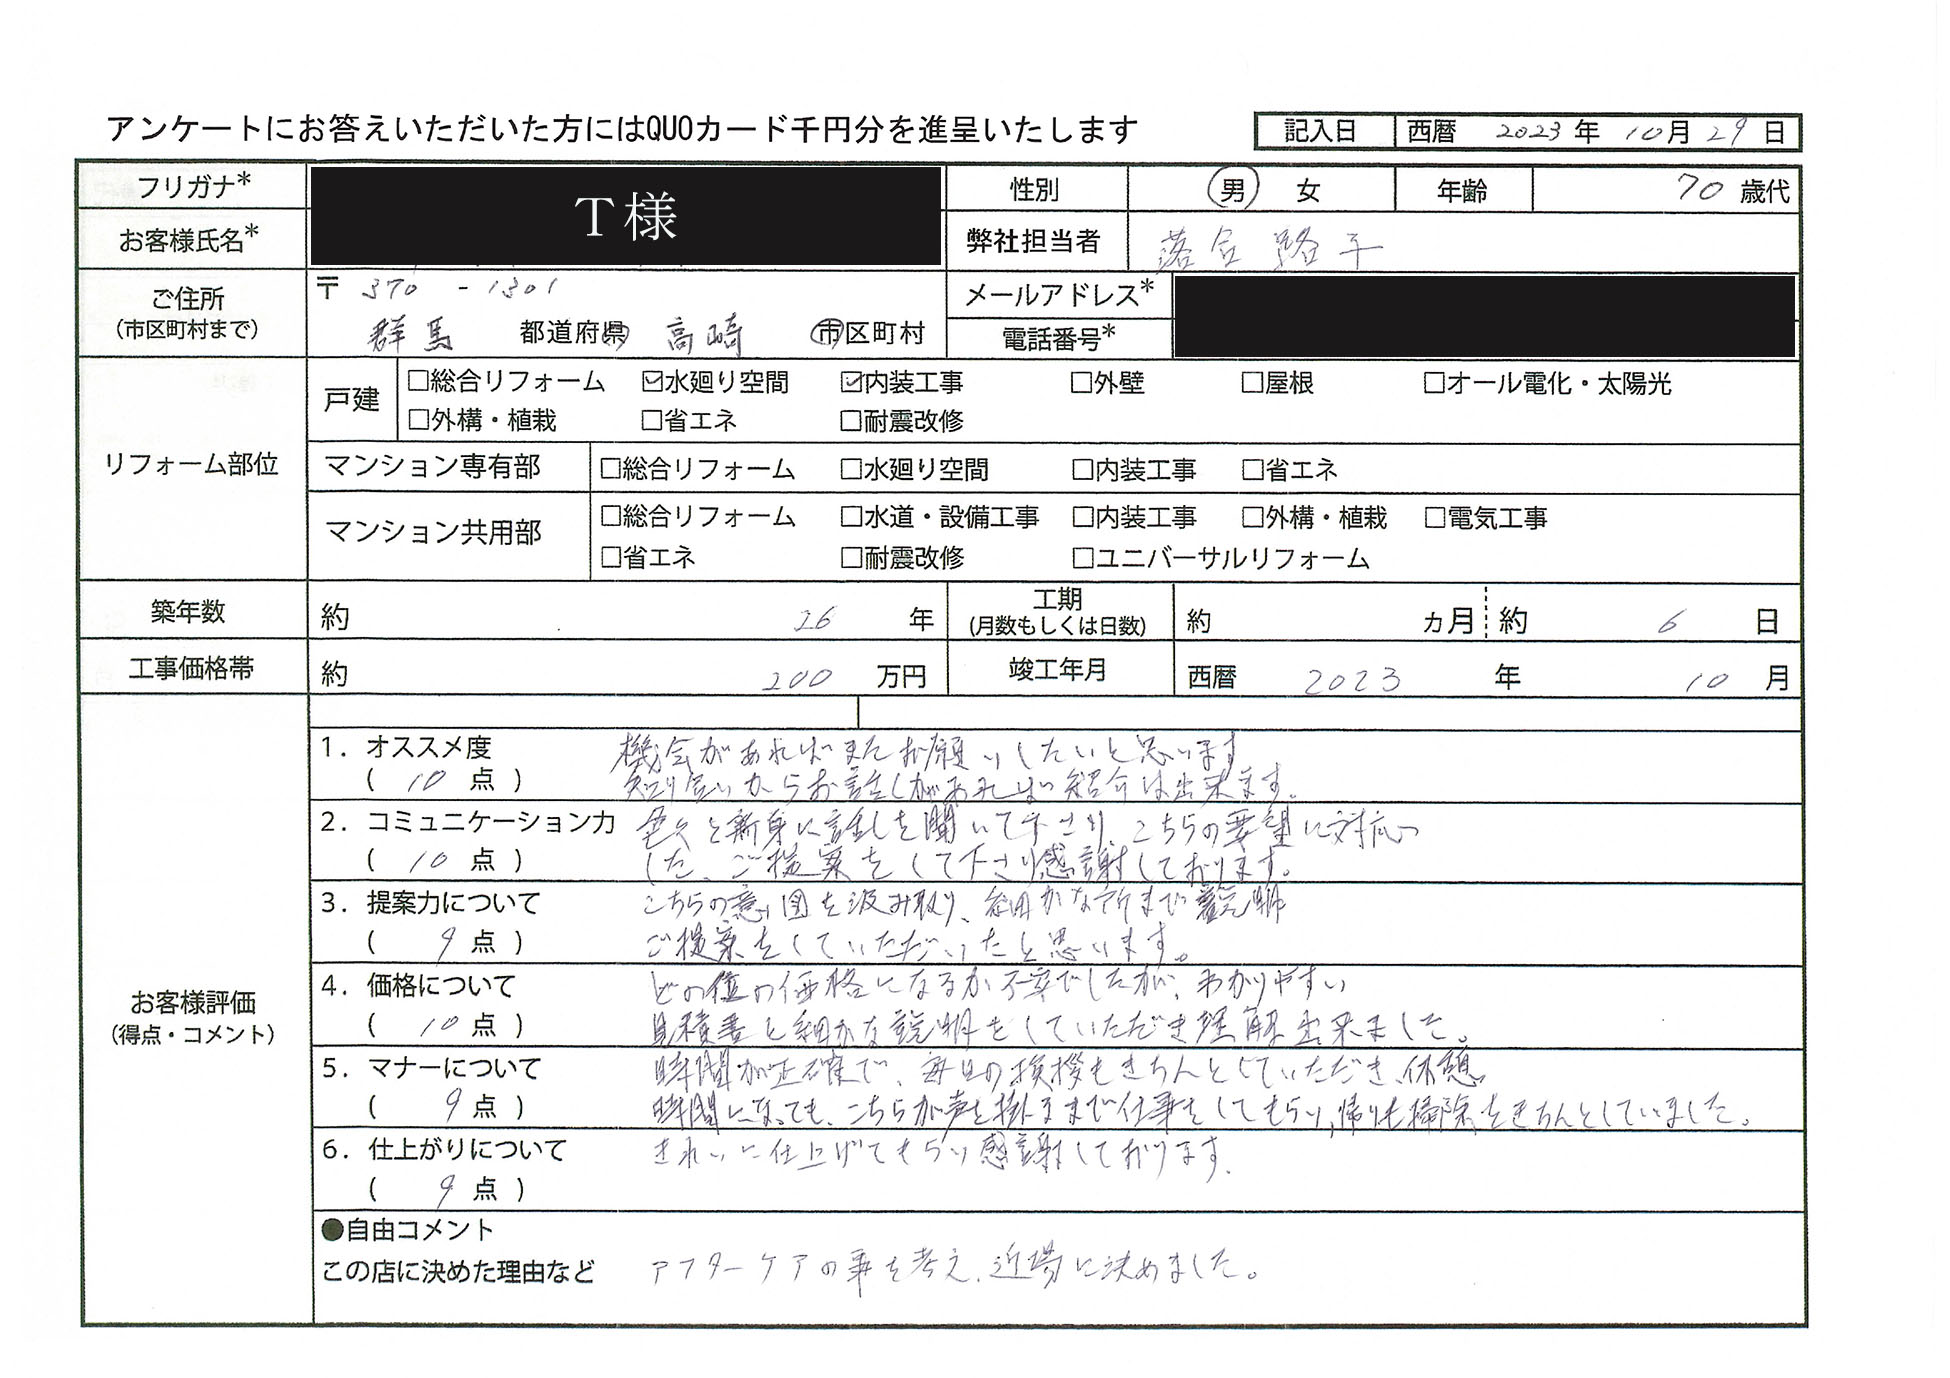 アンケートにお答えいただいた方にはQUOカード千円分を進呈いたします
記入日 西暦 2023 年 10 月 29 日
フリガナ* T様 性別 男 女 年齢 70 歳代
お客様氏名* 弊社担当者 落合 路子
ご住所 〒 370 - 1301 メールアドレス*
(市区町村まで) 群馬 都道府県 高崎 市区町村 電話番号*
リフォーム部位
戸建 □総合リフォーム ☑水廻り空間 ☑内装工事 □外壁 □屋根 □オール電化・太陽光
□外構・植栽 □省エネ □耐震改修
マンション専有部 □総合リフォーム □水廻り空間 □内装工事 □省エネ
マンション共用部 □総合リフォーム □水道・設備工事 □内装工事 □外構・植栽 □電気工事
□省エネ □耐震改修 □ユニバーサルリフォーム
築年数 約 26 年 工期 (月数もしくは日数) 約 ヵ月 約 6 日
工事価格帯 約 200 万円 竣工年月 西暦 2023 年 10 月
お客様評価
(得点・コメント)
1. オススメ度 機会があればまたお願いしたいと思います
( 10 点 ) 知り合いからお話しがあれば紹介は出来ます。
2. コミュニケーション力 色々と新身に話しを聞いて下さり、こちらの要望に対応
( 10 点 ) した、ご提案をして下さり感謝しております。
3. 提案力について こちらの意図を汲み取り、細かな所まで説明
( 9 点 ) ご提案をしていただいたと思います。
4. 価格について どの位の価格になるか不安でしたが、わかりやすい
( 10 点 ) 見積書と細かな説明をしていただき理解出来ました。
5. マナーについて 時間が正確で、毎日の挨拶もきちんとしていただき、休憩
( 9 点 ) 時間になっても、こちらが声を掛るまで仕事をしてもらい、帰りも掃除をきちんとしていました。
6. 仕上がりについて きれいに仕上げてもらい感謝しております。
( 9 点 )
●自由コメント
この店に決めた理由など アフターケアの事を考え、近場に決めました。